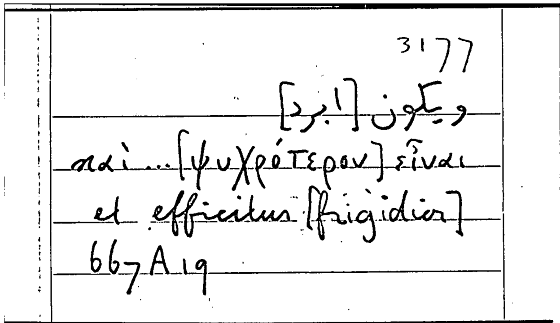 3177
ويكون [ابرد]
καὶ ... [ψυχρότερον] εἶναι
et efficitur [frigidior]
667 A 19